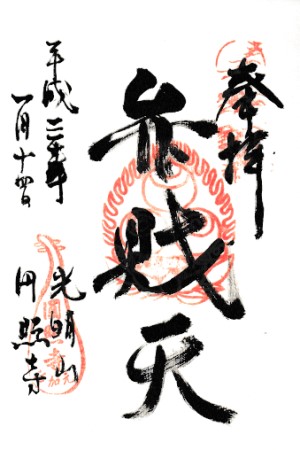 奉拝
弁財天
光明山
円照寺
平成二十年
一月十四日